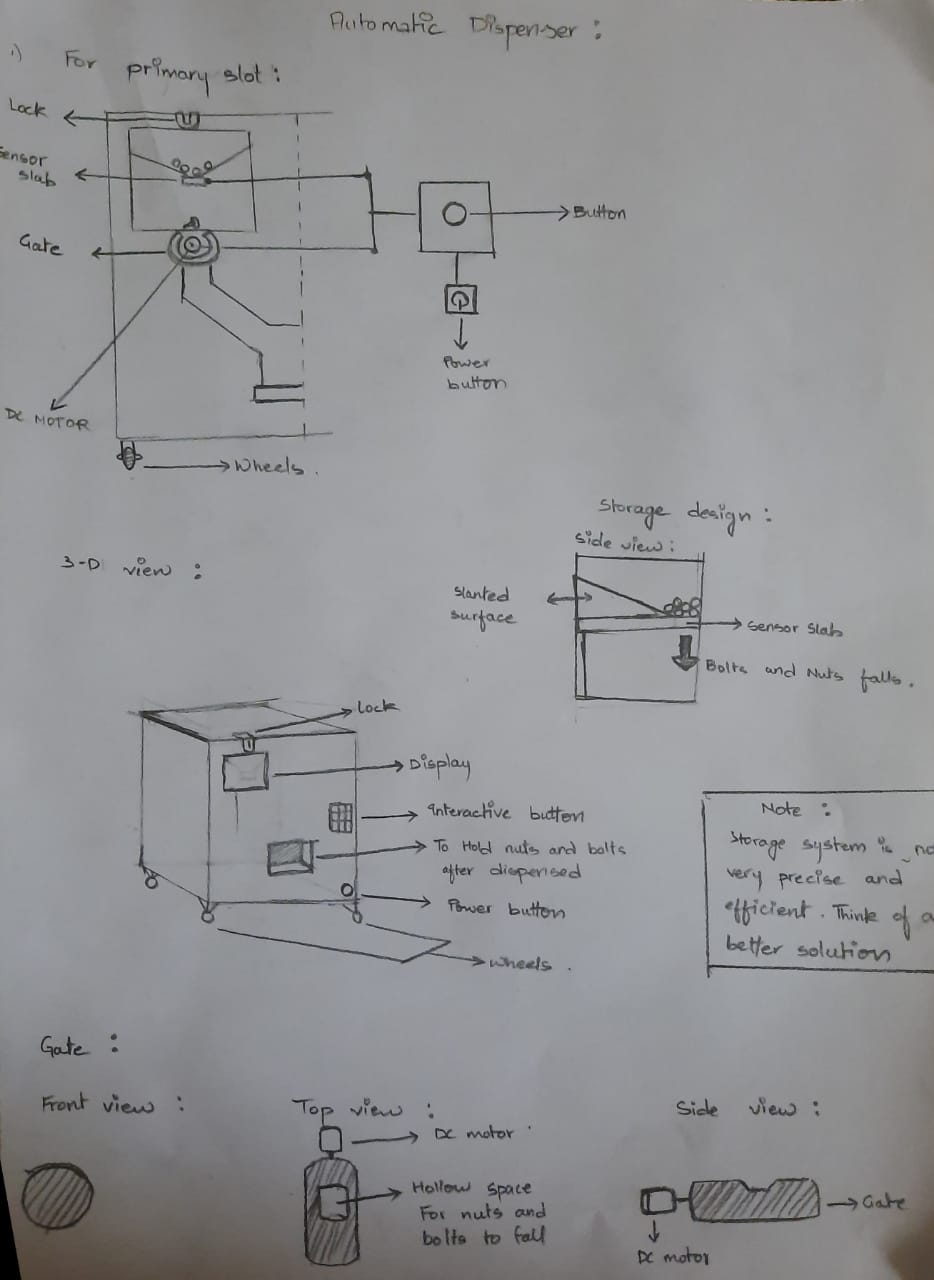 Automatic Dispenser :
1) For primary slot :
Lock
Sensor
slab
Gate
Button
Power
button
DC MOTOR
Wheels .
Storage design :
Side view :
Slanted
surface
Sensor Slab
Bolts and Nuts falls .
3-D view :
Lock
Display
Interactive button
To Hold nuts and bolts
after dispensed
Power button
Wheels .
Note :
Storage system is
very precise and
efficient . Think of a
better solution
Gate :
Front view :
Top view :
DC motor
Hollow space
For nuts and
bolts to fall
Side view :
Gate
DC motor